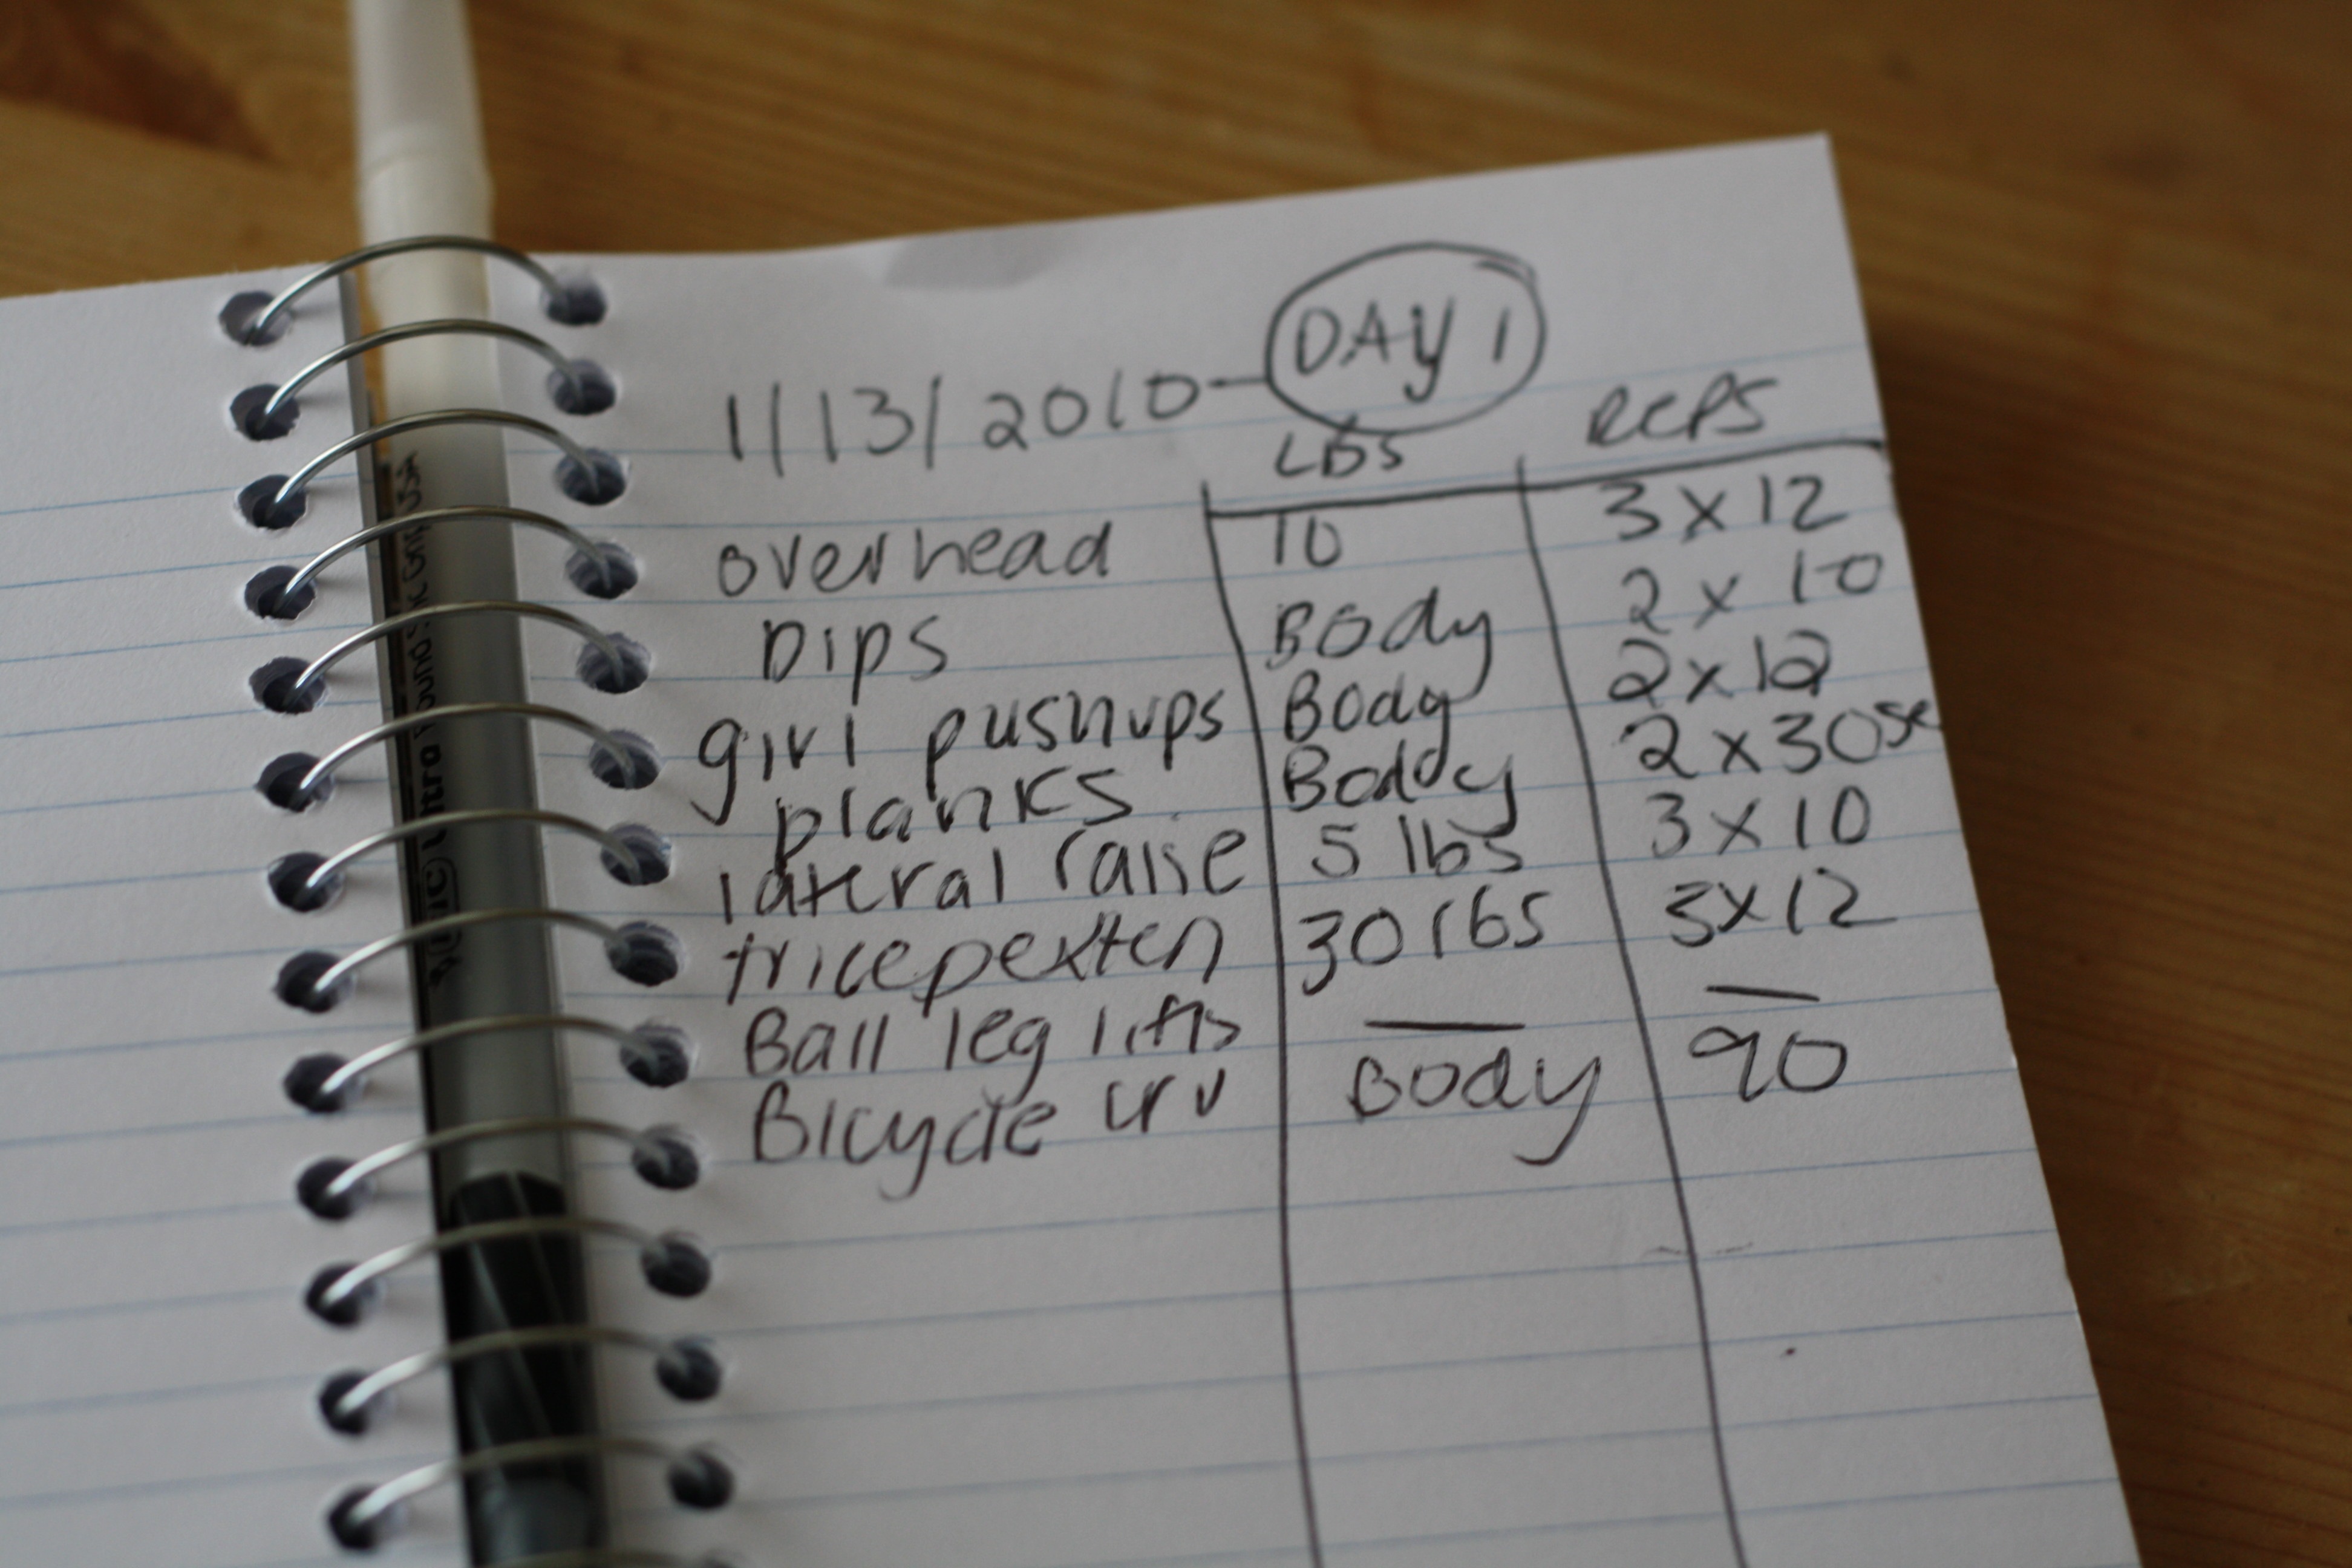 1/13/2010 - DAY 1
LBS REPS
overhead 10 3 x 12
Dips Body 2 x 10
girl pushups Body 2 x 12
planks Body 2 x 30 se
lateral raise 5 lbs 3 x 10
tricep exten 30 lbs 3 x 12
Ball leg lifts — —
Bicycle cru Body 90
BIC Ultra Round Stic Grip USA